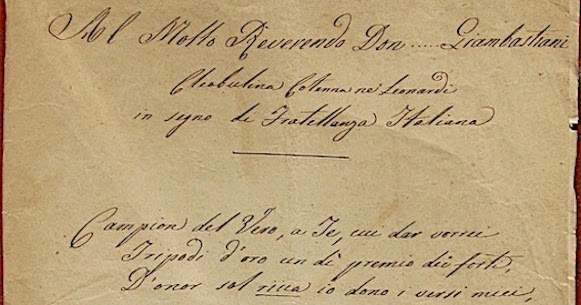 Al Molto Reverendo Don ...... Giambastiani
Cleobulina Cotenna ne' Leonardi
in segno di Fratellanza Italiana
Campion del Vero, a Te, cui dar vorrei
Tripodi d'oro un dì premio dei forti,
D'onor sol ricca io dono i versi miei,